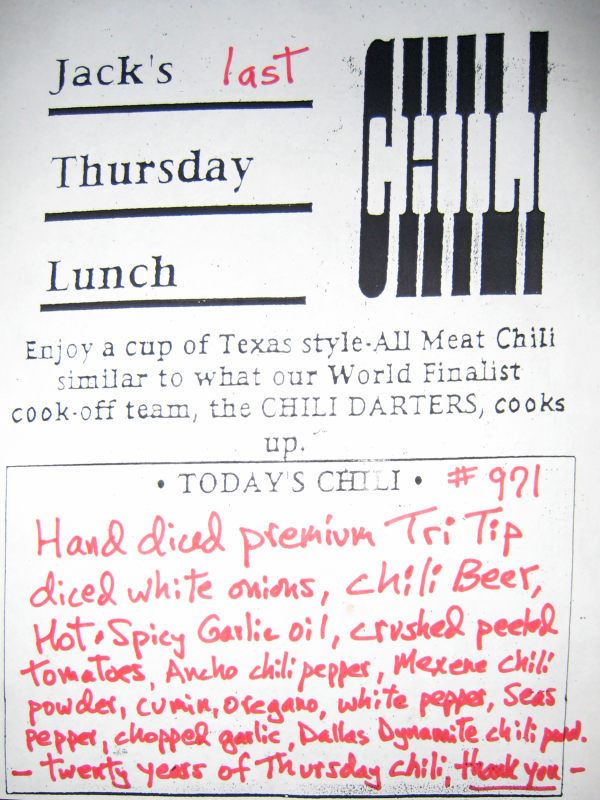 Jack's last
CHILI
Thursday
Lunch
Enjoy a cup of Texas style-All Meat Chili
similar to what our World Finalist
cook-off team, the CHILI DARTERS, cooks
up.
• TODAY'S CHILI • # 971
Hand diced premium Tri Tip
diced white onions, chili Beer,
Hot & Spicy Garlic oil, crushed peeled
tomatoes, Ancho chili pepper, Mexene chili
powder, cumin, oregano, white pepper, Seas
pepper, chopped garlic, Dallas Dynamite chili powd.
- twenty years of Thursday chili, thank you -